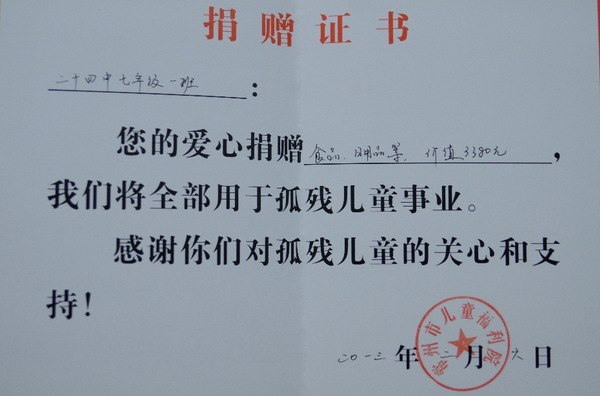 捐赠证书
二十四中七年级一班：
您的爱心捐赠食品、用品等，价值3380元，
我们将全部用于孤残儿童事业。
感谢你们对孤残儿童的关心和支
持！
常州市儿童福利院
二〇一三年二月六日